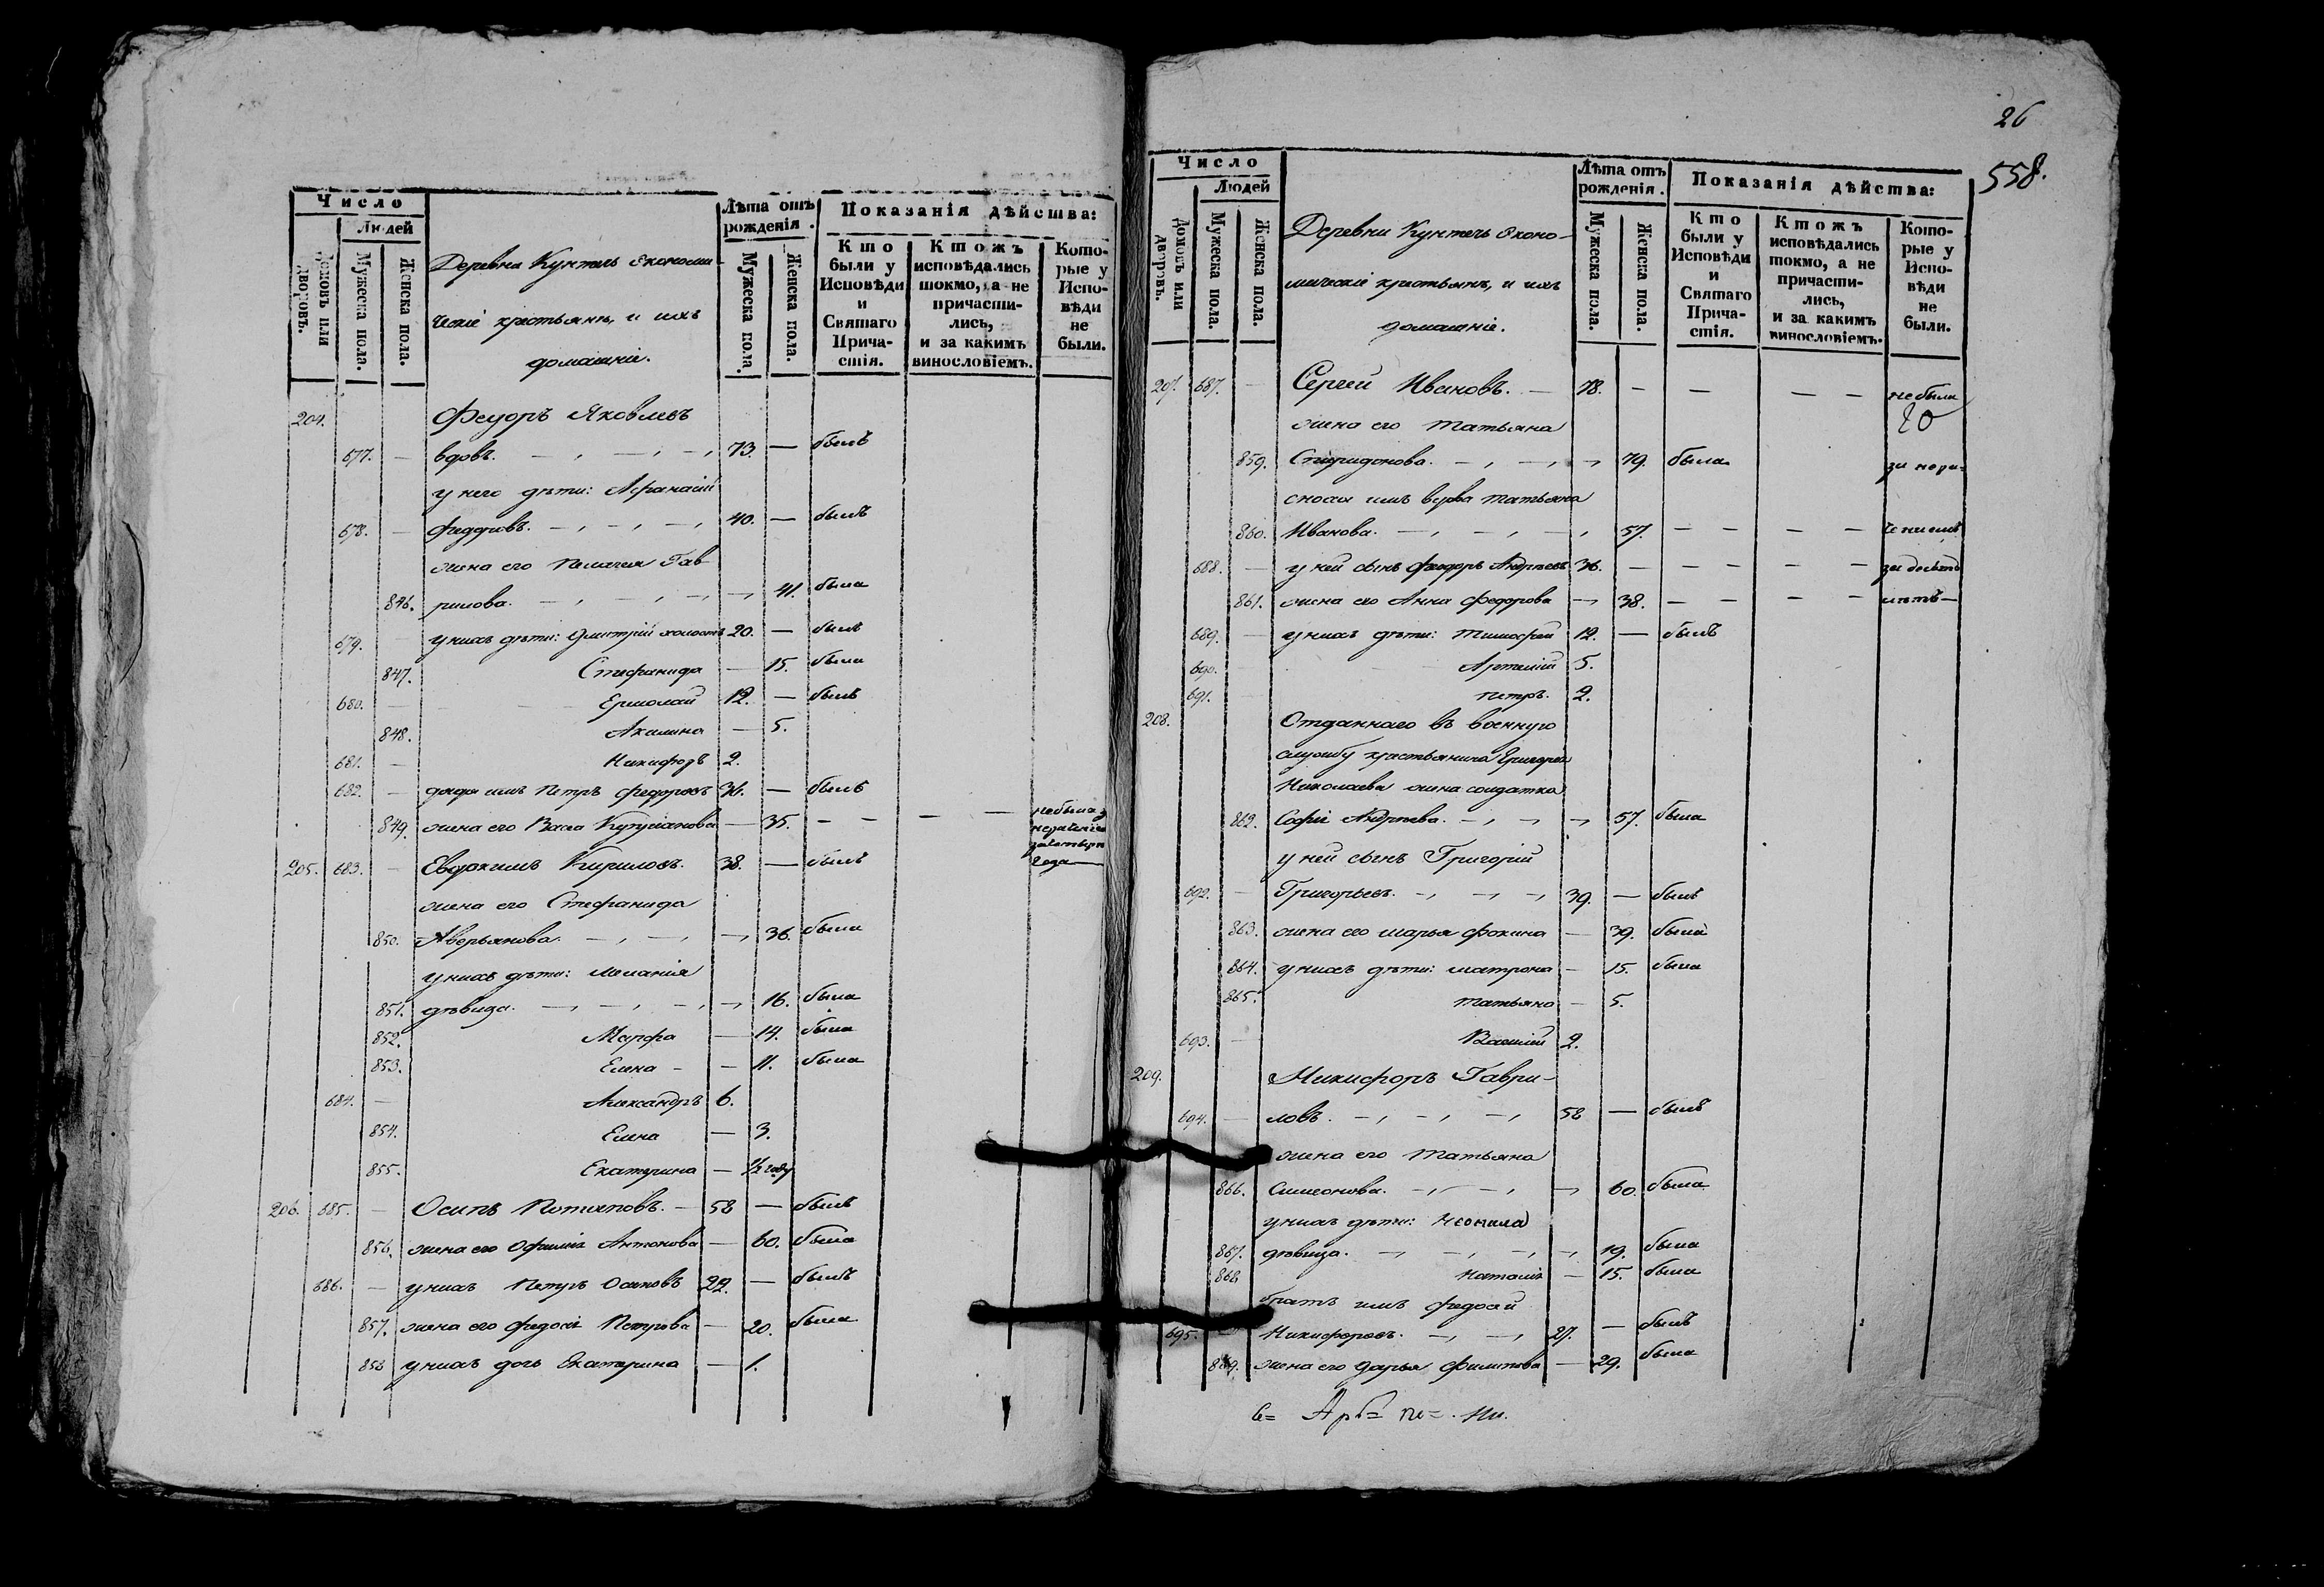 Число
Людей
Домовъ или дворовъ.
Мужеска пола.
Женска пола.
Деревня Кунтель экономи-
ческіе крестьяне, и ихъ
домашніе.
Лѣта отъ рожденія.
Мужеска пола.
Женска пола.
Показанія дѣйства:
Кто были у Исповѣди и Святаго Причастія.
Ктожъ исповѣдались токмо, а не причастились, и за какимъ винословіемъ.
Которые у Исповѣди не были.
204. Феодоръ Яковлевъ
677. — вдовъ. — 73. — былъ
у него дѣти: Афанасій
678. — Федоровъ. — 40. — былъ
жена его Пелагея Гав
846. рилова. — 41. была
679. у нихъ дѣти: Дмитрій холостъ 20. — былъ
847. Стефанида — 15. была
680. — Ермолай 12. — былъ
848. Акилина — 5.
681. — Никифоръ 2.
682. — дядя имъ Петръ Федоровъ 36. — былъ
849. жена его Васса — 35. — — — — не была
205. 683. — Евдокимъ Кириловъ. 38. — былъ
года
жена его Стефанида
850. Аверьянова. — 36. была
у нихъ дѣти: Меланія
851. дѣвица. — 16. была
852. Марфа — 14. была
853. Елена — 11. была
684. — Александръ 6.
854. Елена — 3.
855. Екатерина — 1/2 году
206. 685. — Осипъ Потаповъ. — 58 — былъ
856. жена его Офимія Антонова — 60. была
686. — у нихъ Петръ Осиповъ 22. — былъ
857. жена его Федосія Петрова — 20. была
858 у нихъ дочь Екатерина — 1.
26
558.
Число
Людей
Домовъ или дворовъ.
Мужеска пола.
Женска пола.
Деревни Кунтель эконо-
мическіе крестьяне, и ихъ
домашніе.
Лѣта отъ рожденія.
Мужеска пола.
Женска пола.
Показанія дѣйства:
Кто были у Исповѣди и Святаго Причастія.
Ктожъ исповѣдались токмо, а не причастились, и за какимъ винословіемъ.
Которые у Исповѣди не были.
207. 687. — Сергей Ивановъ. — 78. — — — — не были
жена его Татьяна
859. Спиридонова. — 79. была за нера-
сноха имъ вдова Татьяна
860. Иванова. — 57. — — — — ченіемъ
688. — у ней сынъ Феодоръ Андреевъ 36. — — — — — за десять
861. жена его Анна Федорова — 38. — — — — лѣтъ —
689. — у нихъ дѣти: Тимофей 12. — былъ
690. Артемій 5.
691. Петръ. 2.
208. Отданнаго въ военную
службу крестьянина Григорья
Николаева жена солдатка
862. Софія Андреева. — 57. была
у ней сынъ Григорій
692. — Григорьевъ. — 39. — былъ
863. жена его Марья Фокина — 39. была
864. у нихъ дѣти: Матрона — 15. была
865. Татьяна — 5.
693. — Василій 2.
209. Никифоръ Гаври-
694. — ловъ. — 58 — былъ
жена его Татьяна
866. Симеонова. — 60. была
у нихъ дѣти: Неонила
867. дѣвица. — 19. была
868 Наталія — 15. была
братъ имъ Федосѣй
695. Никифоровъ. — 27. — былъ
869. жена его Дарья Филипова — 29. была